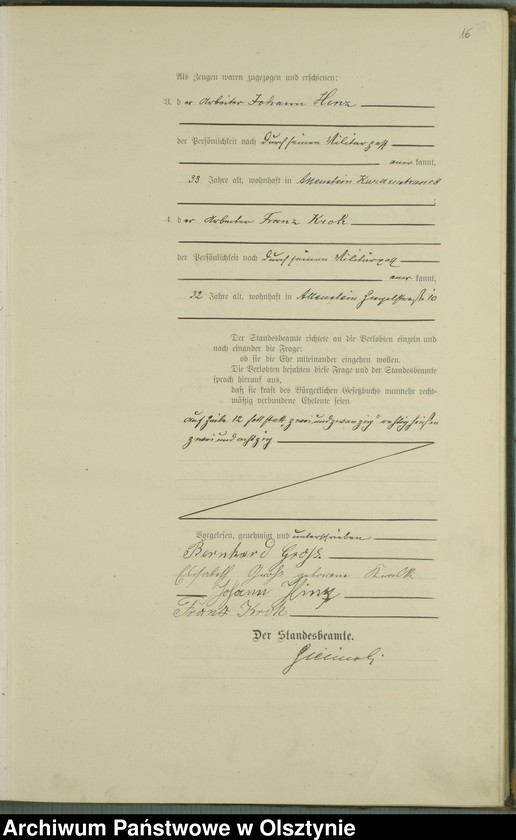 16
Als Zeugen waren zugezogen und erschienen:
3. der Arbeiter Johann Hinz
der Persönlichkeit nach durch seinen Militärpaß
anerkannt,
33 Jahre alt, wohnhaft in Allenstein
4. der Arbeiter Franz Krok
der Persönlichkeit nach durch seinen Militärpaß
anerkannt,
32 Jahre alt, wohnhaft in Allenstein 10
Der Standesbeamte richtete an die Verlobten einzeln und
nach einander die Frage:
ob sie die Ehe miteinander eingehen wollen.
Die Verlobten bejahten diese Frage und der Standesbeamte
sprach hierauf aus,
daß sie kraft des Bürgerlichen Gesetzbuchs nunmehr recht-
mäßig verbundene Eheleute seien.
Auf Zeile 12 soll statt „zweiundzwanzig" richtig heißen
zweiundachtzig
Vorgelesen, genehmigt und unterschrieben
Bernhard Groß
Elisabeth Groß geborene
Johann Hinz
Franz Krok
Der Standesbeamte.
Archiwum Państwowe w Olsztynie